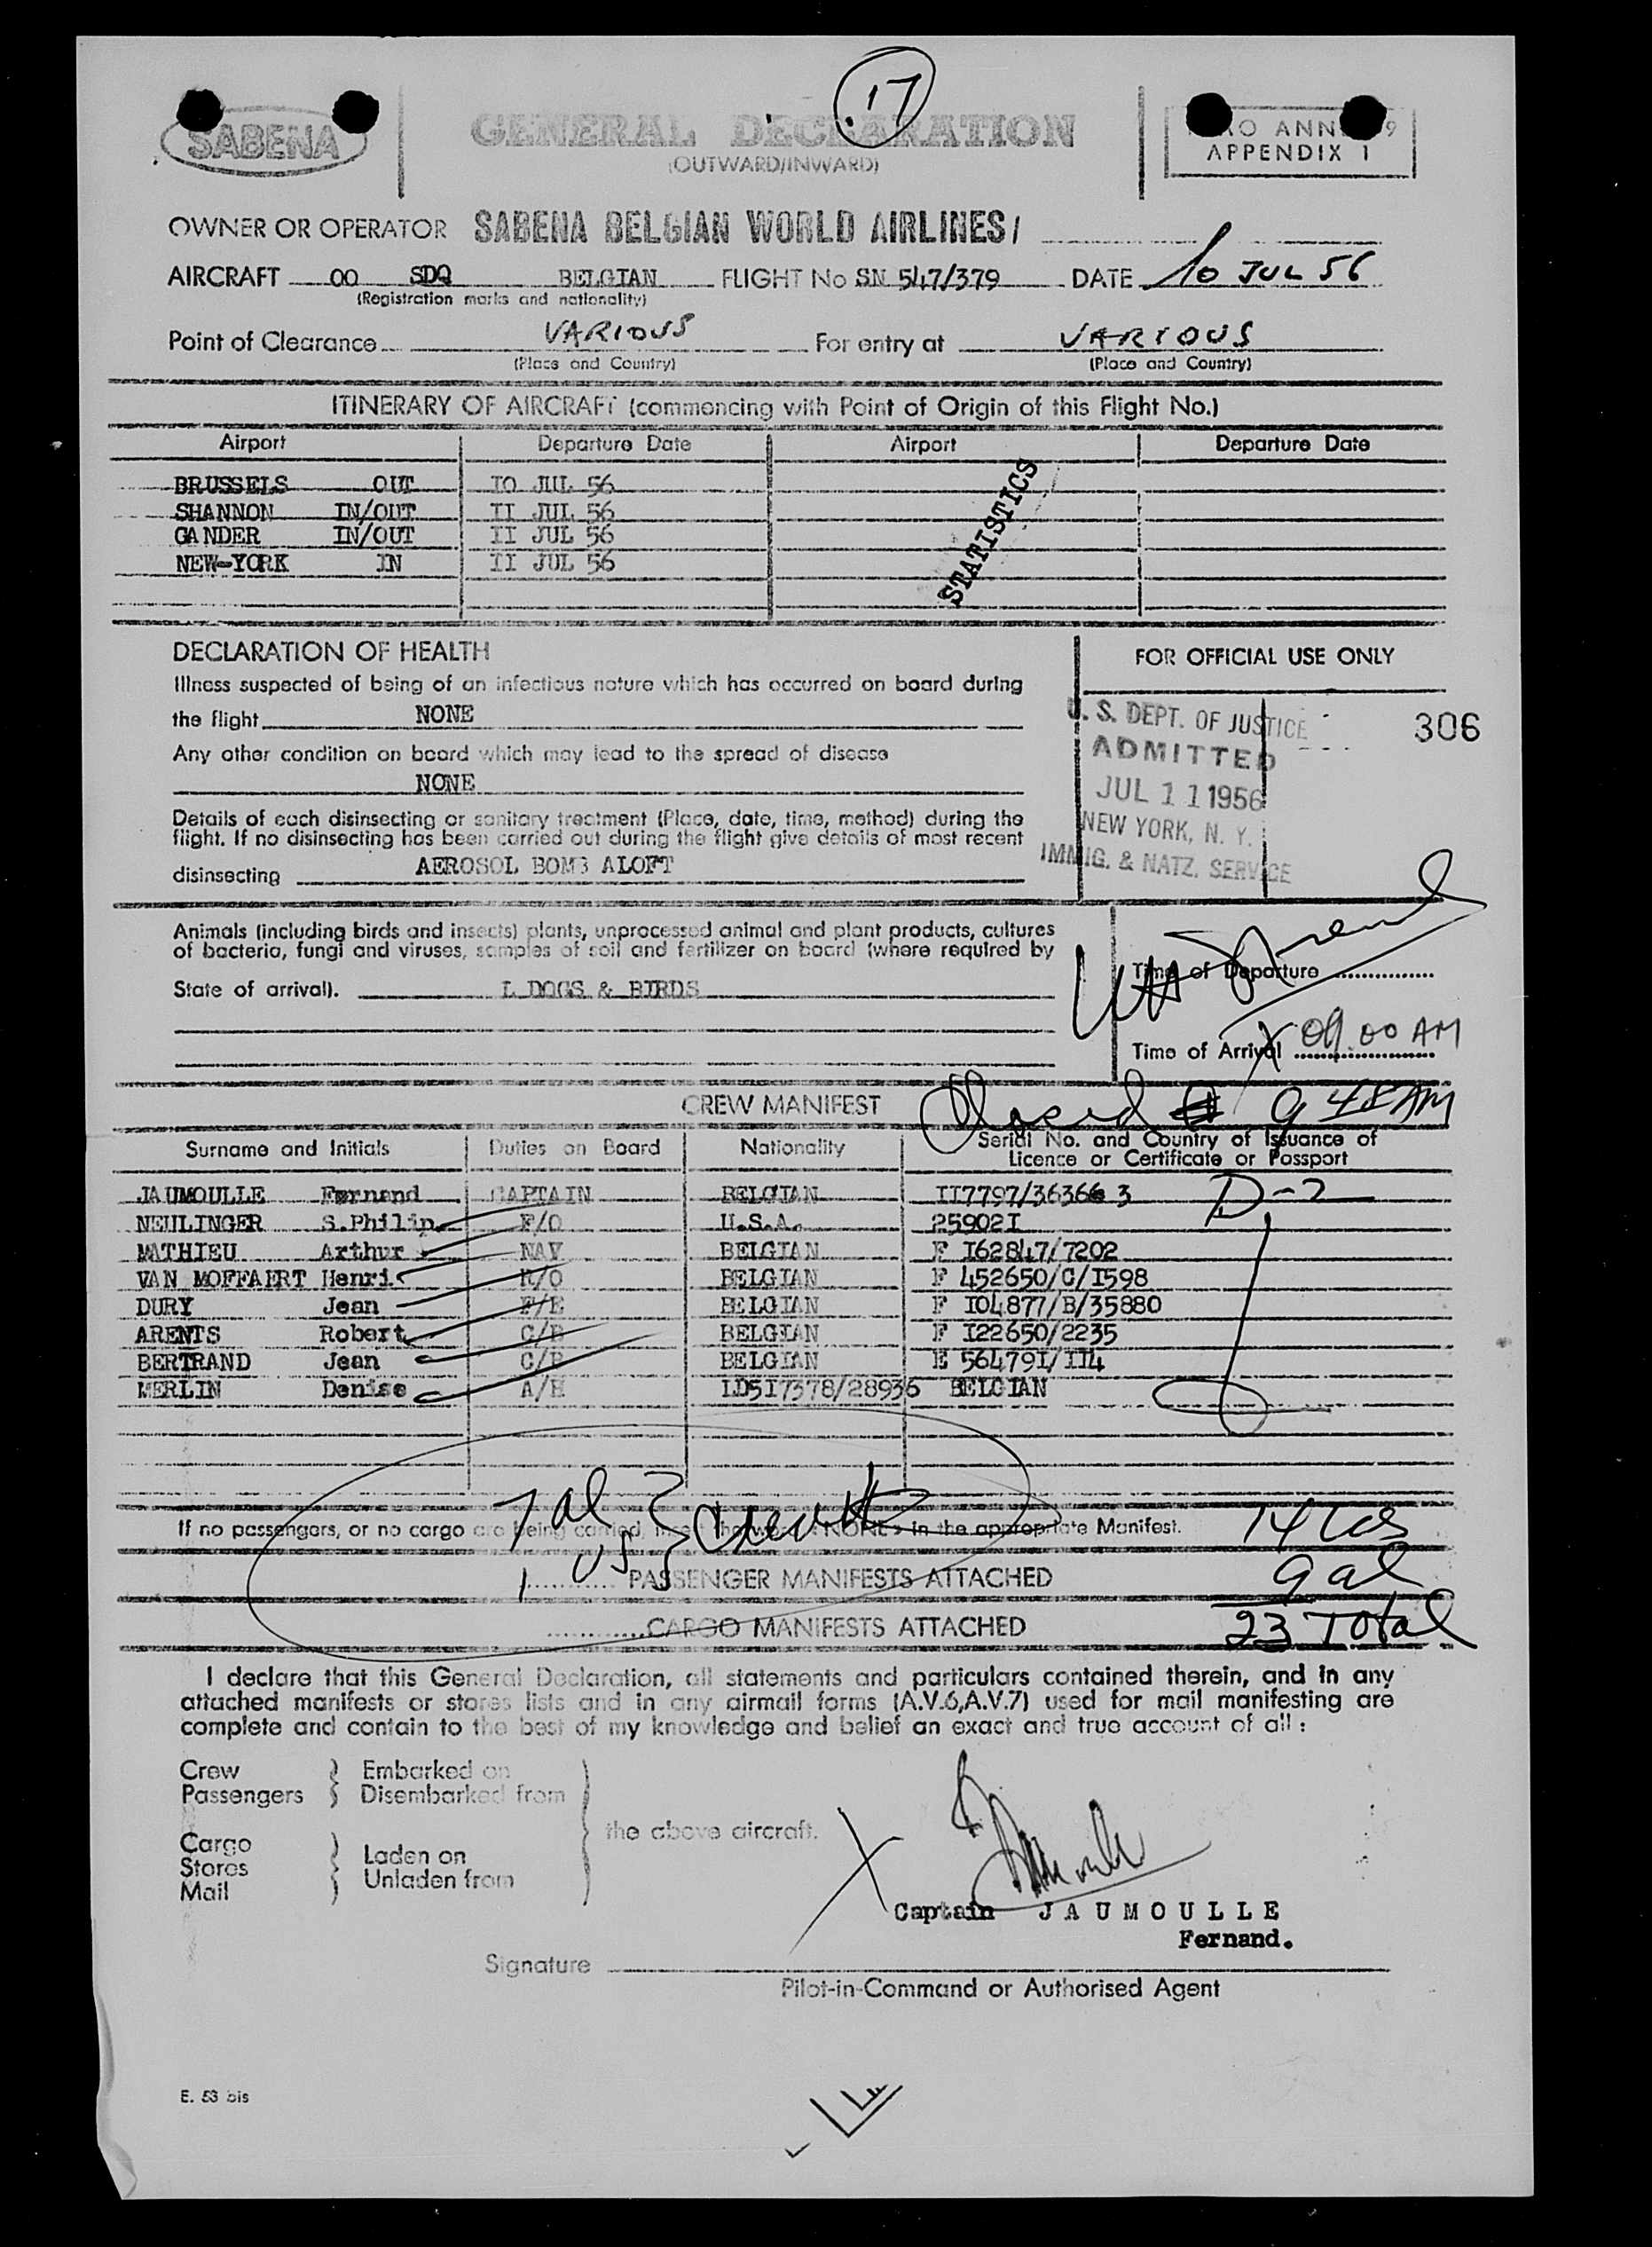 17
SABENA
GENERAL DECLARATION
(OUTWARD/INWARD)
ANN 9
APPENDIX 1
OWNER OR OPERATOR SABENA BELGIAN WORLD AIRLINES/
AIRCRAFT OO SDQ BELGIAN FLIGHT No SN 547/379 DATE 10 JUL 56
(Registration marks and nationality)
Point of Clearance VARIOUS For entry at VARIOUS
(Place and Country) (Place and Country)
ITINERARY OF AIRCRAFT (commencing with Point of Origin of this Flight No.)
Airport Departure Date Airport Departure Date
BRUSSELS OUT IO JUL 56
SHANNON IN/OUT II JUL 56
GANDER IN/OUT II JUL 56
NEW-YORK IN II JUL 56
STATISTICS
DECLARATION OF HEALTH
Illness suspected of being of an infectious nature which has occurred on board during
the flight NONE
Any other condition on board which may lead to the spread of disease
NONE
Details of each disinsecting or sanitary treatment (Place, date, time, method) during the
flight. If no disinsecting has been carried out during the flight give details of most recent
disinsecting AEROSOL BOMB ALOFT
FOR OFFICIAL USE ONLY
U. S. DEPT. OF JUSTICE
306
ADMITTED
JUL 11 1956
NEW YORK, N. Y.
IMMIG. & NATZ. SERVICE
Animals (including birds and insects) plants, unprocessed animal and plant products, cultures
of bacteria, fungi and viruses, samples of soil and fertilizer on board (where required by
State of arrival). L DOGS & BIRDS
Time of Departure
Time of Arrival 09.00 AM
CREW MANIFEST
Closed @ 9 48 AM
Surname and Initials Duties on Board Nationality Serial No. and Country of Issuance of
Licence or Certificate or Passport
JAUMOULLE Fernand CAPTAIN BELGIAN II7797/36366 3 D-2
NEULINGER S.Philip F/O U.S.A. 25902I
MATHIEU Arthur NAV BELGIAN F I62847/7202
VAN MOFFAERT Henri R/O BELGIAN F 452650/C/I598
DURY Jean F/E BELGIAN F IO4877/B/35880
ARENTS Robert C/B BELGIAN F I22650/2235
BERTRAND Jean C/B BELGIAN E 56479I/II4
MERLIN Denise A/H LD5I7378/28936 BELGIAN
7 al
1 US
If no passengers, or no cargo are being carried, insert the word « NONE » in the appropriate Manifest.
14
PASSENGER MANIFESTS ATTACHED
9 al
CARGO MANIFESTS ATTACHED
23 Total
I declare that this General Declaration, all statements and particulars contained therein, and in any
attached manifests or stores lists and in any airmail forms (A.V.6,A.V.7) used for mail manifesting are
complete and contain to the best of my knowledge and belief an exact and true account of all :
Crew
Passengers
Embarked on
Disembarked from
the above aircraft.
Cargo
Stores
Mail
Laden on
Unladen from
X
Captain JAUMOULLE
Fernand.
Signature
Pilot-in-Command or Authorised Agent
E. 53 bis